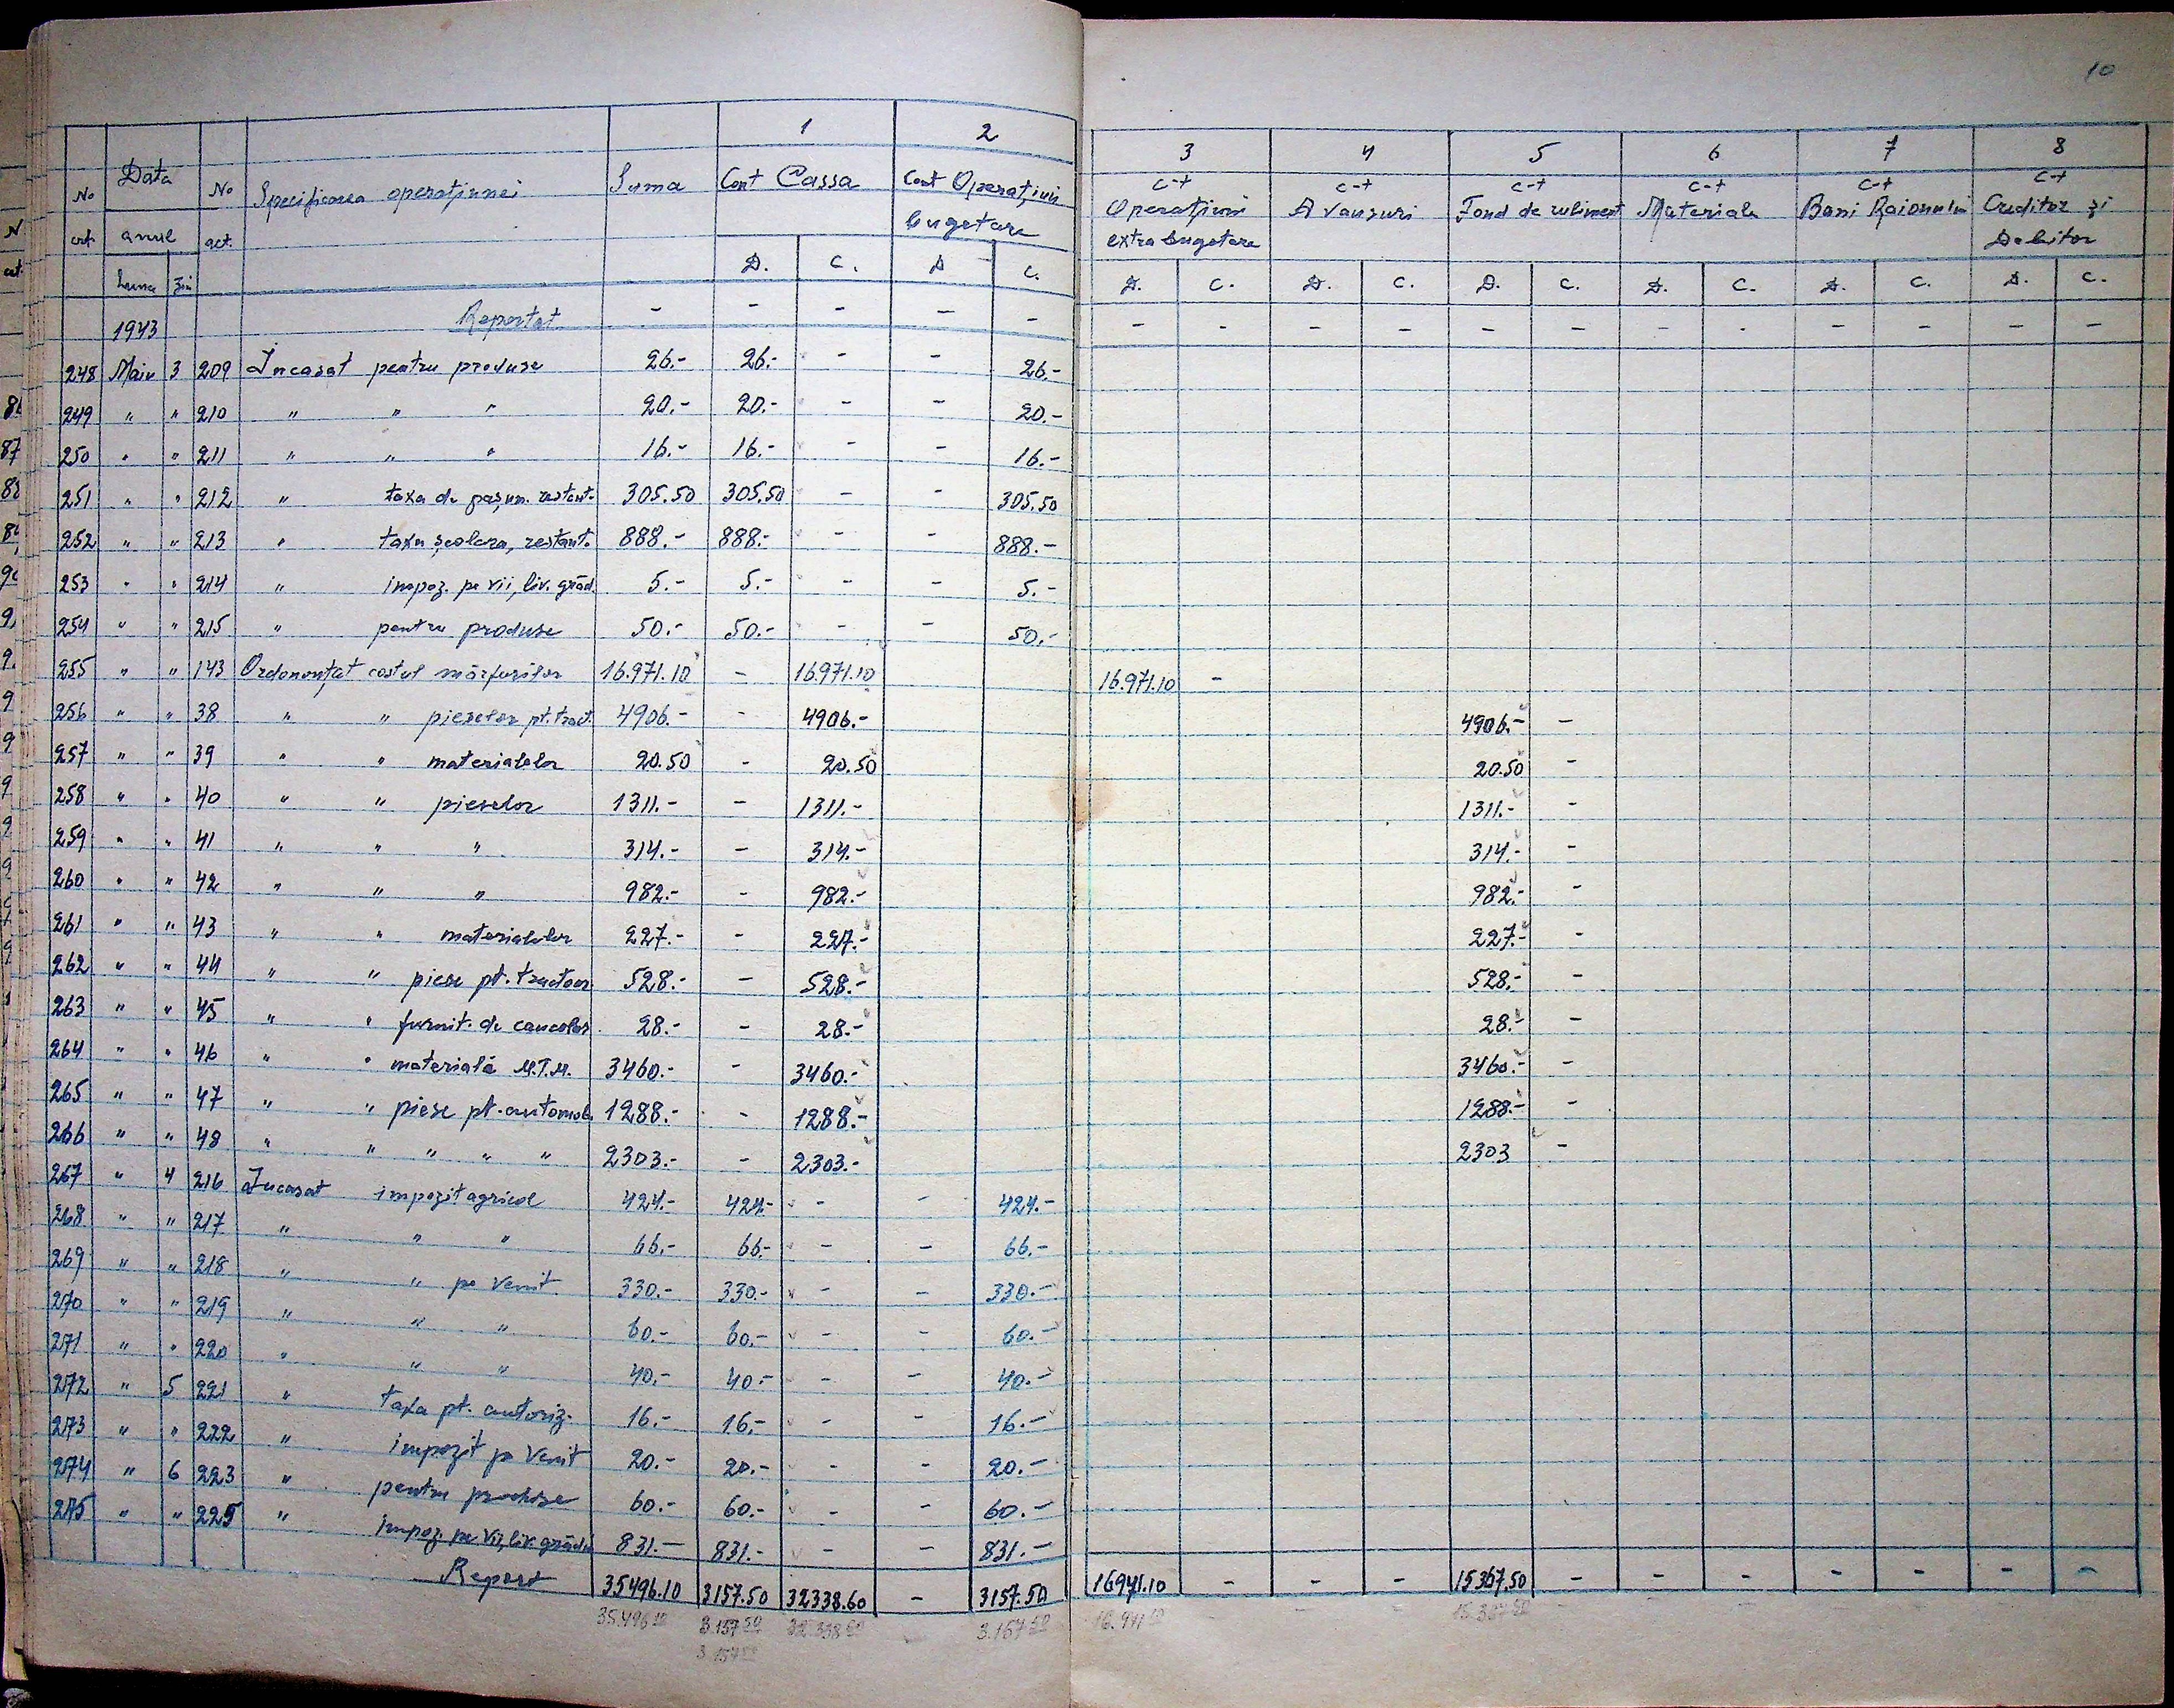 10
1 2 3 4 5 6 7 8
No crt. Data anul No act. Specificarea operațiunei Suma Cont Cassa Cont Operațiuni bugetare c-t Operațiuni extrabugetare c-t Avansuri c-t Fond de ruliment c-t Materiale c-t Bani Raionului c-t Creditor și Debitor
Luna Zin D. C. D C. D. C. D. C. D. C. D. C. D. C. D. C.
1943 Reportat - - - - - - - - - - - - - - - - -
248 Maiu 3 209 Încasat pentru produse 26.- 26.- - - 26.-
249 " " 210 " " " 20.- 20.- - - 20.-
250 " " 211 " " " 16.- 16.- - - 16.-
251 " " 212 " taxa de pășun. restant. 305.50 305.50 - - 305.50
252 " " 213 " taxa școlara, restant. 888.- 888.- - - 888.-
253 " " 214 " impoz. pe vii, liv. grăd. 5.- 5.- - - 5.-
254 " " 215 " pentru produse 50.- 50.- - - 50.-
255 " " 143 Ordonanțat costul mărfurilor 16.971.10 - 16.971.10 16.971.10 -
256 " " 38 " " pieselor pt. tract. 4906.- - 4906.- 4906.- -
257 " " 39 " " materialelor 20.50 - 20.50 20.50 -
258 " " 40 " " pieselor 1311.- - 1311.- 1311.- -
259 " " 41 " " " 314.- - 314.- 314.- -
260 " " 42 " " " 982.- - 982.- 982.- -
261 " " 43 " " materialelor 227.- - 227.- 227.- -
262 " " 44 " " piese pt. tractoar. 528.- - 528.- 528.- -
263 " " 45 " " furnit. de cancelar. 28.- - 28.- 28.- -
264 " " 46 " " materială M.T.M. 3460.- - 3460.- 3460.- -
265 " " 47 " " piese pt. automob. 1288.- - 1288.- 1288.- -
266 " " 48 " " " " " 2303.- - 2303.- 2303 -
267 " 4 216 Încasat impozit agricol 424.- 424.- - - 424.-
268 " " 217 " " " 66.- 66.- - - 66.-
269 " " 218 " " pe venit 330.- 330.- - - 330.-
270 " " 219 " " " 60.- 60.- - - 60.-
271 " " 220 " " " 40.- 40.- - - 40.-
272 " 5 221 " taxa pt. autoriz. 16.- 16.- - - 16.-
273 " " 222 " impozit pe venit 20.- 20.- - - 20.-
274 " 6 223 " pentru produse 60.- 60.- - - 60.-
275 " " 225 " impoz. pe vii, liv. grădin 831.- 831.- - - 831.-
Report 35496.10 3157.50 32338.60 - 3157.50 16971.10 - - - 15367.50 - - - - - - -
35.496 10 3.157 50 32.338 60 3.157 50 16.971 10 15.367 50
3.157 50